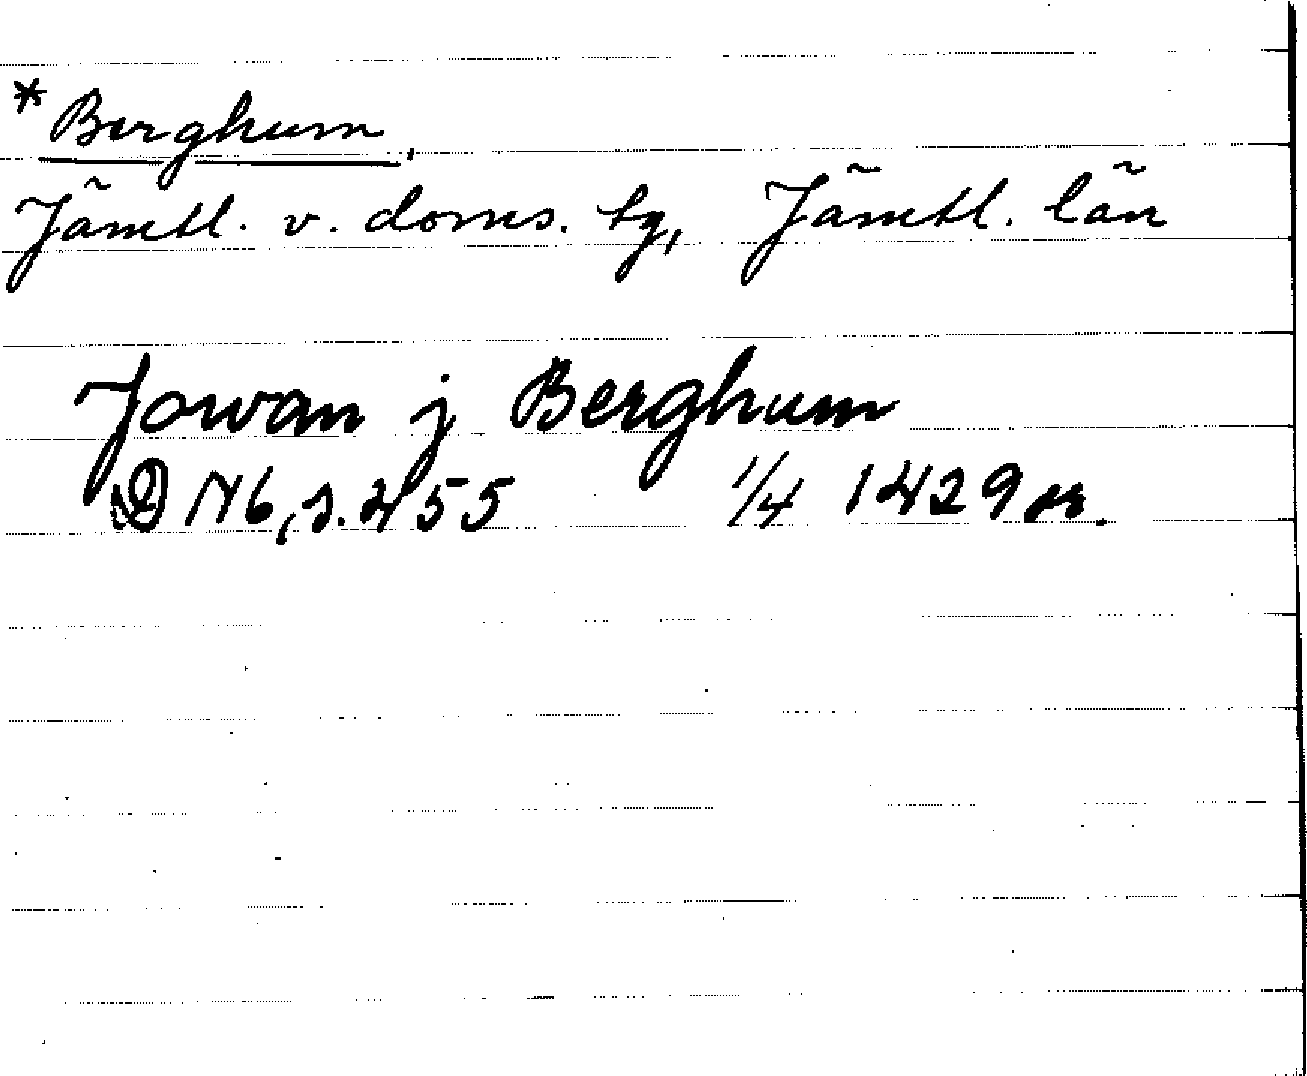 *Berghum,
Jämtl. v. doms. tg, Jämtl. län
Jowan j Berghum
DN6, s. 255 1/4 1429 or.